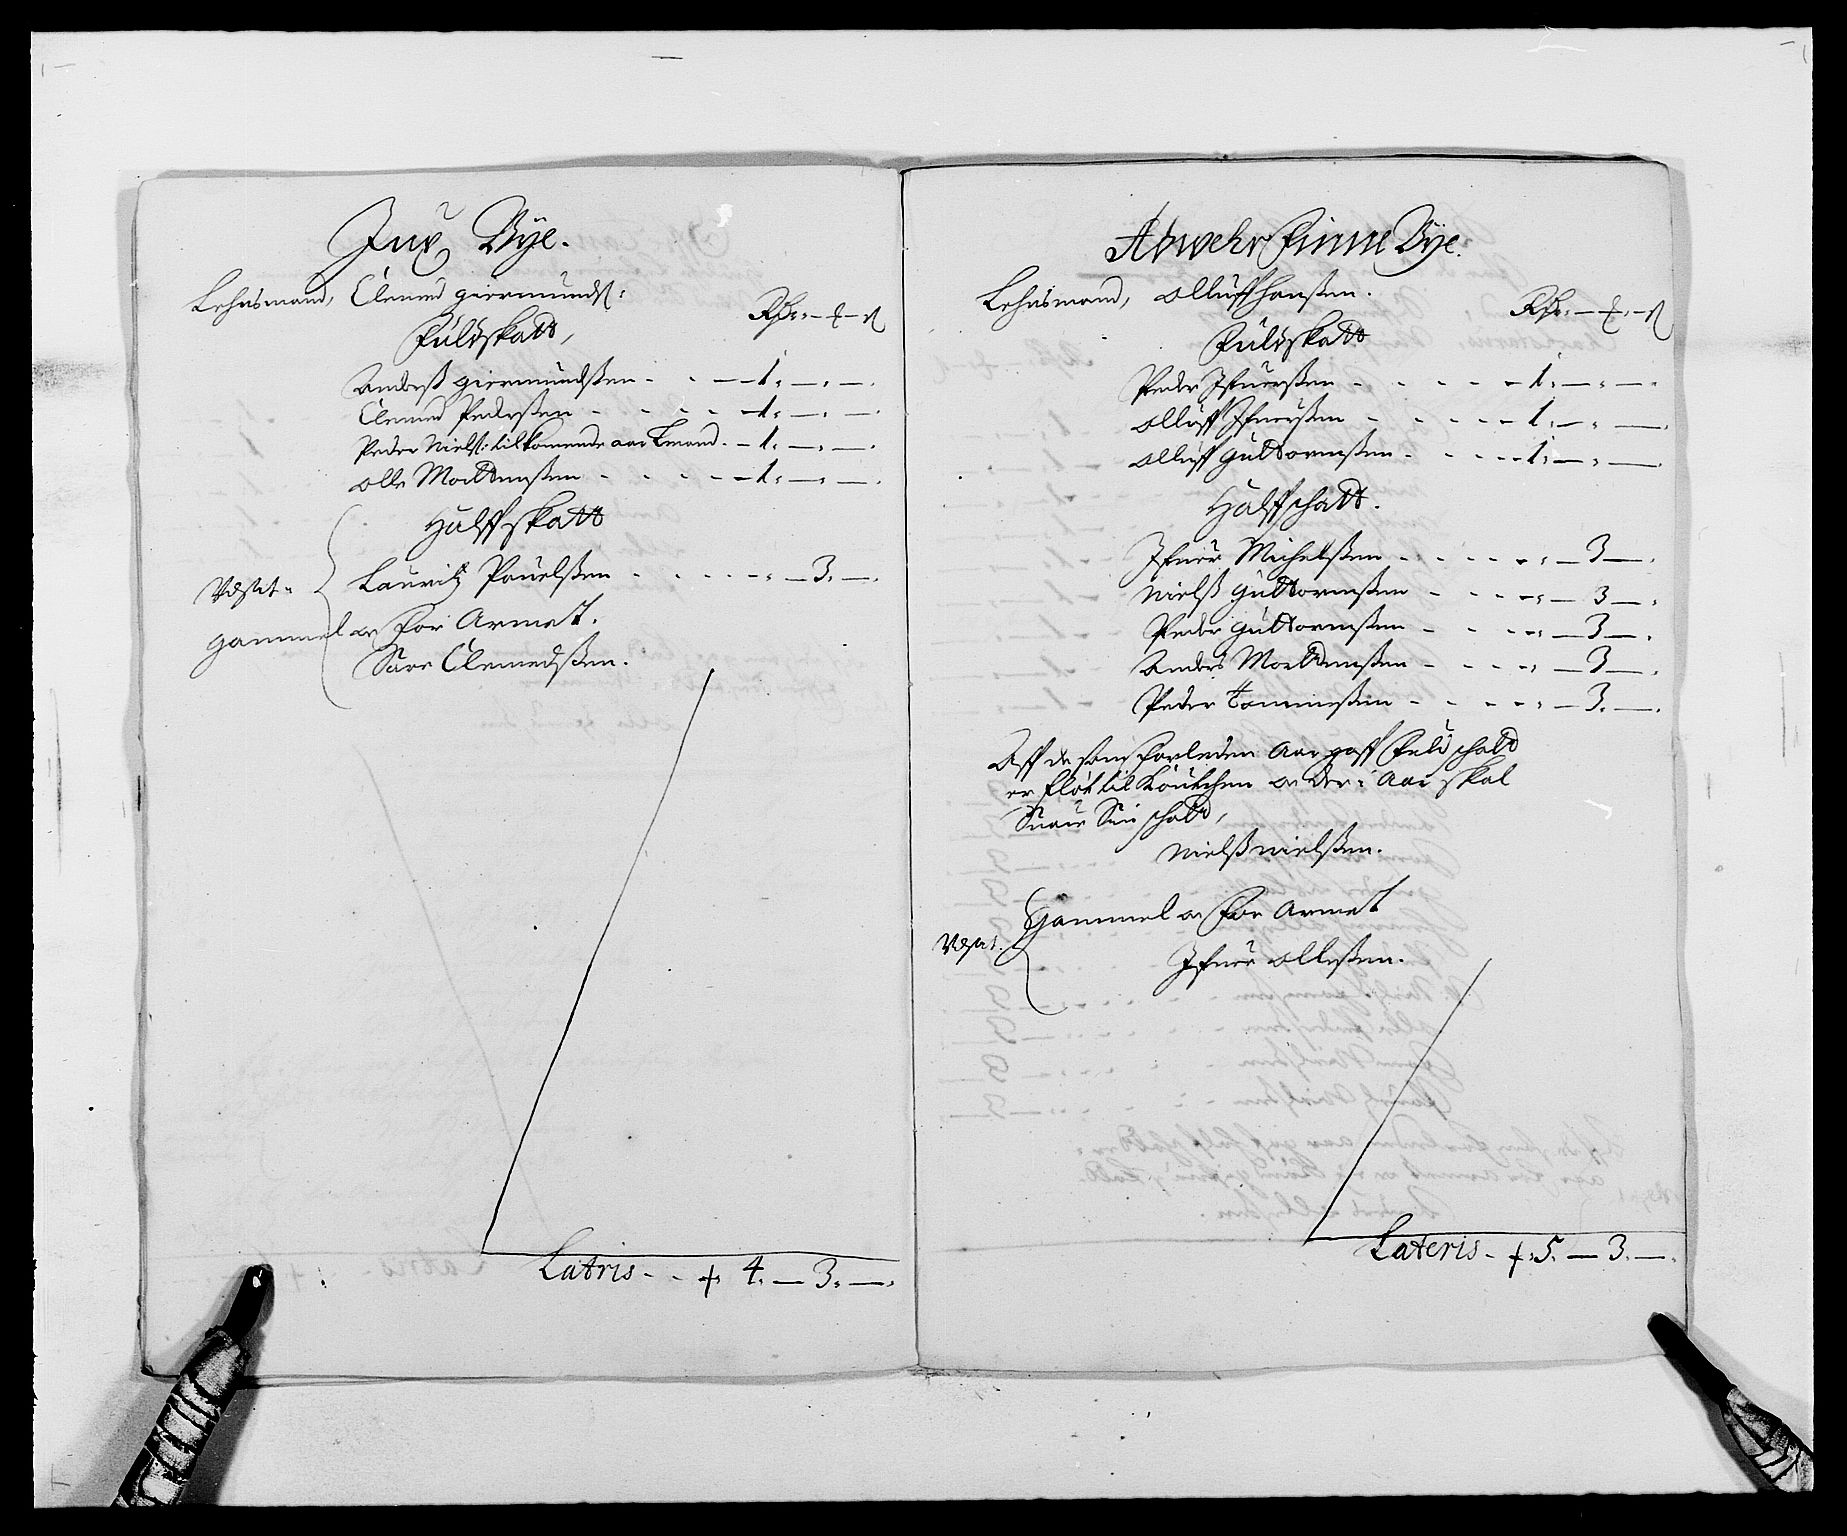 Jux Bÿe.
Lehnsmand, Clemed giermunds:
Rdr. — £ — ß
Fuldskatt,
Anders giermundsen - - - 1. — . — .
Clemed Pedersen - - - - 1. — . — .
Peder Niels: tilkomende aar Lmand. - 1. — . — .
Olle Mortensen - - - - 1. — . — .
Halffskatt
Lauritz Pouelsen - - - - - — 3. — .
Vdsat -
gammel oc forarmet.
Sare Clemedsen.
Latris - - + 4. — 3. — .
Adwehr Finne Bÿe.
Lehnsmand, Olluff Hansen.
Rdr. — £. — ß
Fuldskatt
Peder Ifuersen - - - - - 1. — . — .
Olluff Ifuersen - - - - - 1. — . — .
Olluff Guttormsen - - - - 1. — . — .
Halffschatt.
Ifuer Michelsen - - - - - — 3 — .
Niels Guttormsen - - - - — 3 — .
Peder Guttormsen - - - - — 3 — .
Anders Mortensen - - - - — 3 — .
Peder Tommesen - - - - — 3. — .
Aff de som forleden Aar gaff Fuld schatt
er fløt til oc der i Aar skal
Suare Sin schatt,
Niels Nielsen.
Gammel oc forarmet
Vdsat.
Ifuer Ollesen.
Lateris - + 5. — 3. — .